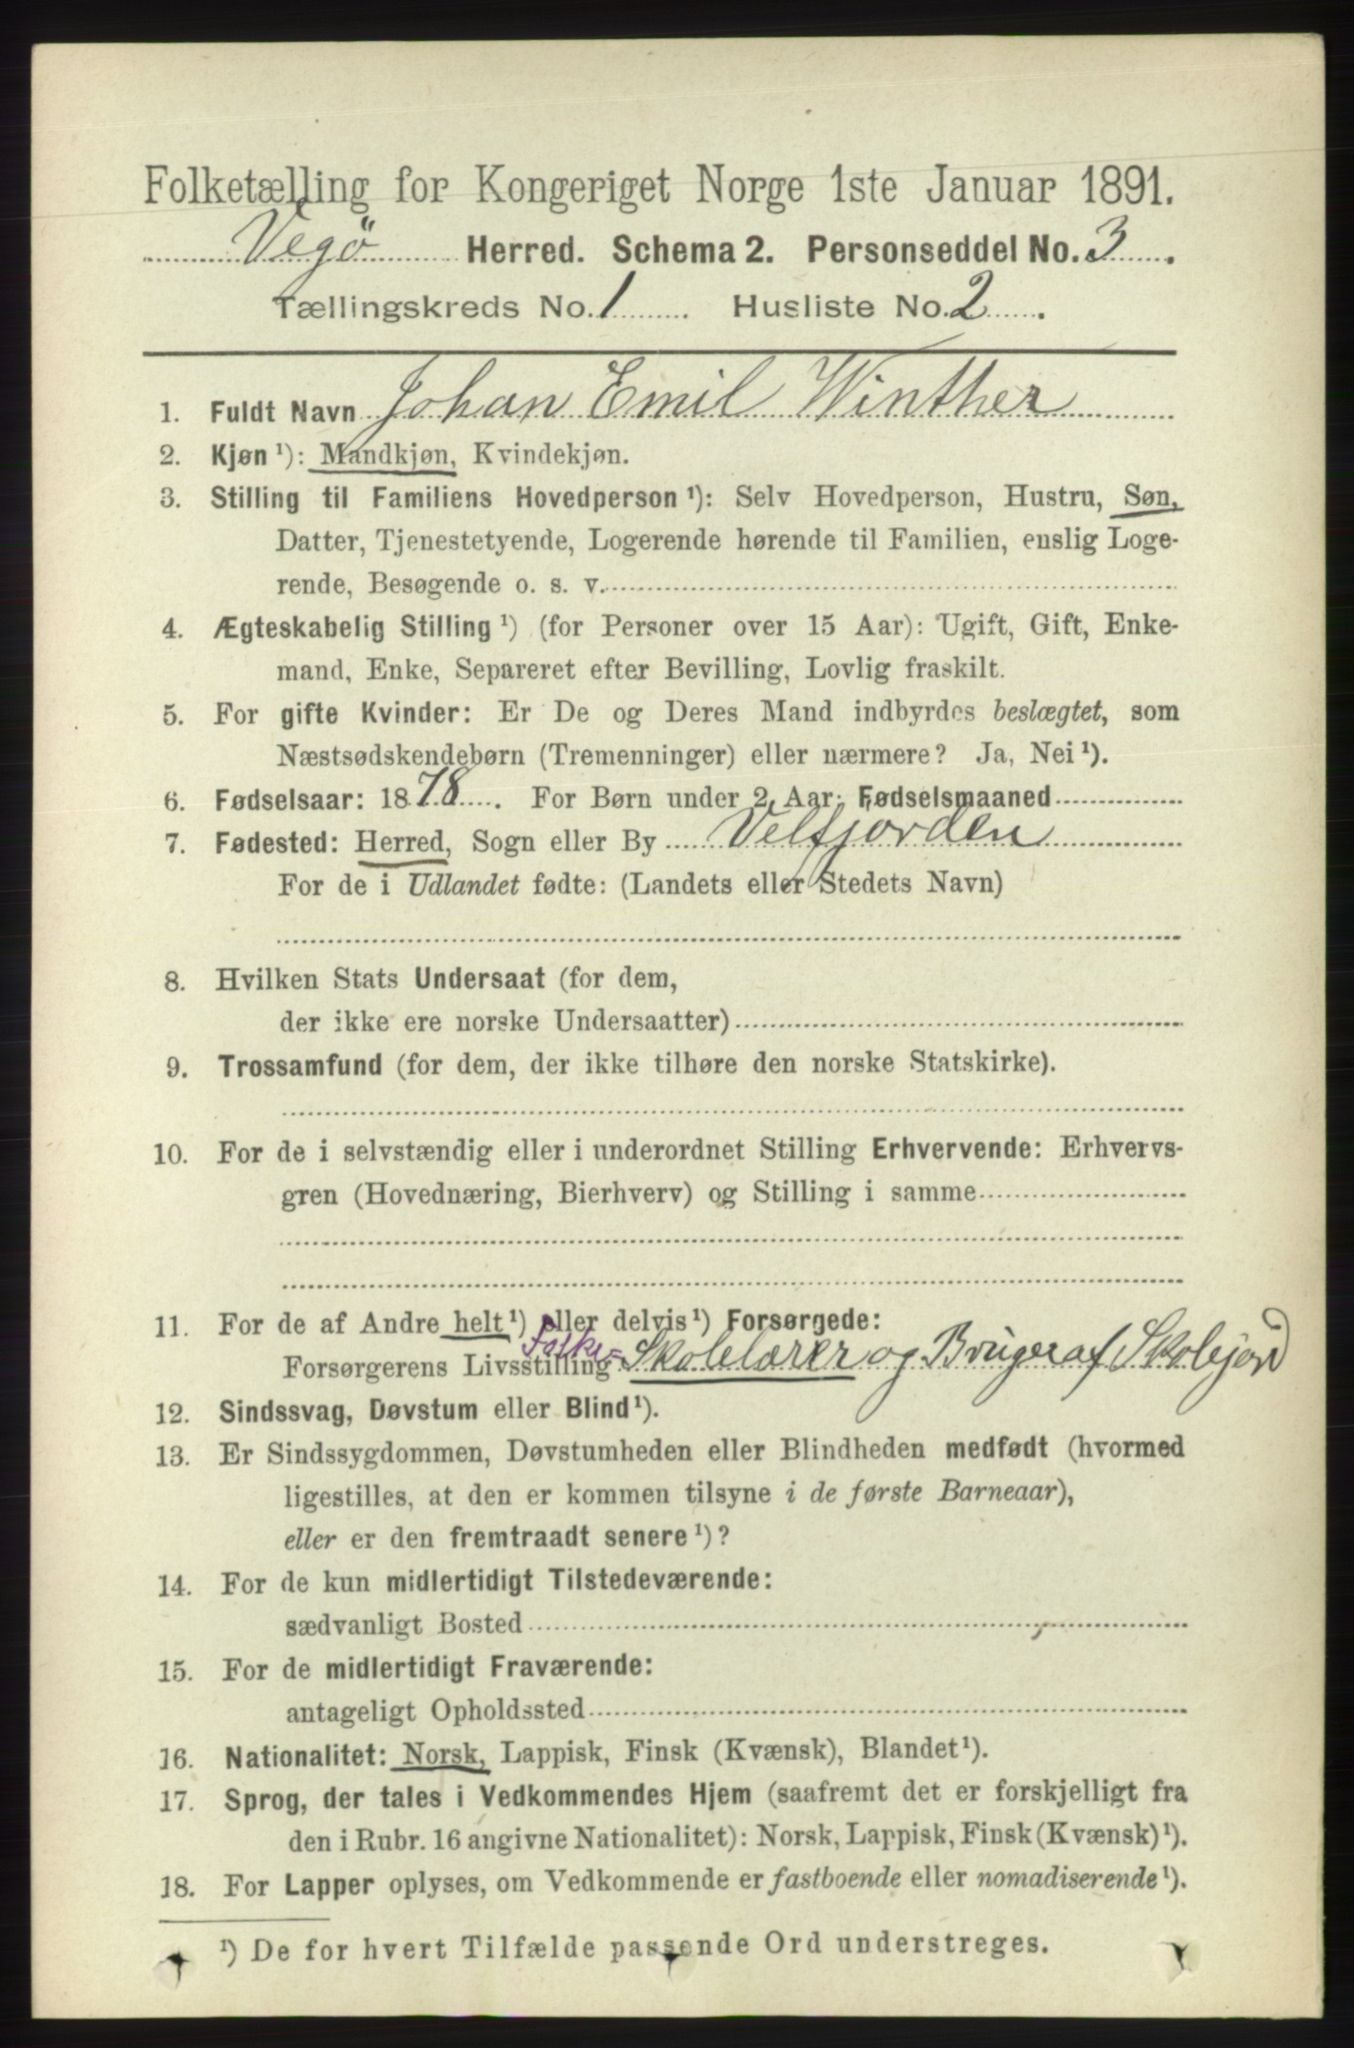 Folketælling for Kongeriget Norge 1ste Januar 1891.
Vegø Herred. Schema 2. Personseddel No. 3.
Tællingskreds No. 1. Husliste No. 2.
1. Fuldt Navn Johan Emil Winther
2. Kjøn ¹): Mandkjøn, Kvindekjøn.
3. Stilling til Familiens Hovedperson ¹): Selv Hovedperson, Hustru, Søn,
Datter, Tjenestetyende, Logerende hørende til Familien, enslig Loge-
rende, Besøgende o. s. v.
4. Ægteskabelig Stilling ¹) (for Personer over 15 Aar): Ugift, Gift, Enke-
mand, Enke, Separeret efter Bevilling, Lovlig fraskilt.
5. For gifte Kvinder: Er De og Deres Mand indbyrdes beslægtet, som
Næstsødskendebørn (Tremenninger) eller nærmere? Ja, Nei ¹).
6. Fødselsaar: 1878. For Børn under 2 Aar: Fødselsmaaned
7. Fødested: Herred, Sogn eller By Velfjorden
For de i Udlandet fødte: (Landets eller Stedets Navn)
8. Hvilken Stats Undersaat (for dem,
der ikke ere norske Undersaatter)
9. Trossamfund (for dem, der ikke tilhøre den norske Statskirke).
10. For de i selvstændig eller i underordnet Stilling Erhvervende: Erhvervs-
gren (Hovednæring, Bierhverv) og Stilling i samme
11. For de af Andre helt ¹) eller delvis ¹) Forsørgede:
Forsørgerens Livsstilling Folke= Skolelærer og Bruger af Skolejord
12. Sindssvag, Døvstum eller Blind ¹).
13. Er Sindssygdommen, Døvstumheden eller Blindheden medfødt (hvormed
ligestilles, at den er kommen tilsyne i de første Barneaar),
eller er den fremtraadt senere ¹)?
14. For de kun midlertidigt Tilstedeværende:
sædvanligt Bosted
15. For de midlertidigt Fraværende:
antageligt Opholdssted
16. Nationalitet: Norsk, Lappisk, Finsk (Kvænsk), Blandet ¹).
17. Sprog, der tales i Vedkommendes Hjem (saafremt det er forskjelligt fra
den i Rubr. 16 angivne Nationalitet): Norsk, Lappisk, Finsk (Kvænsk) ¹).
18. For Lapper oplyses, om Vedkommende er fastboende eller nomadiserende ¹).
¹) De for hvert Tilfælde passende Ord understreges.